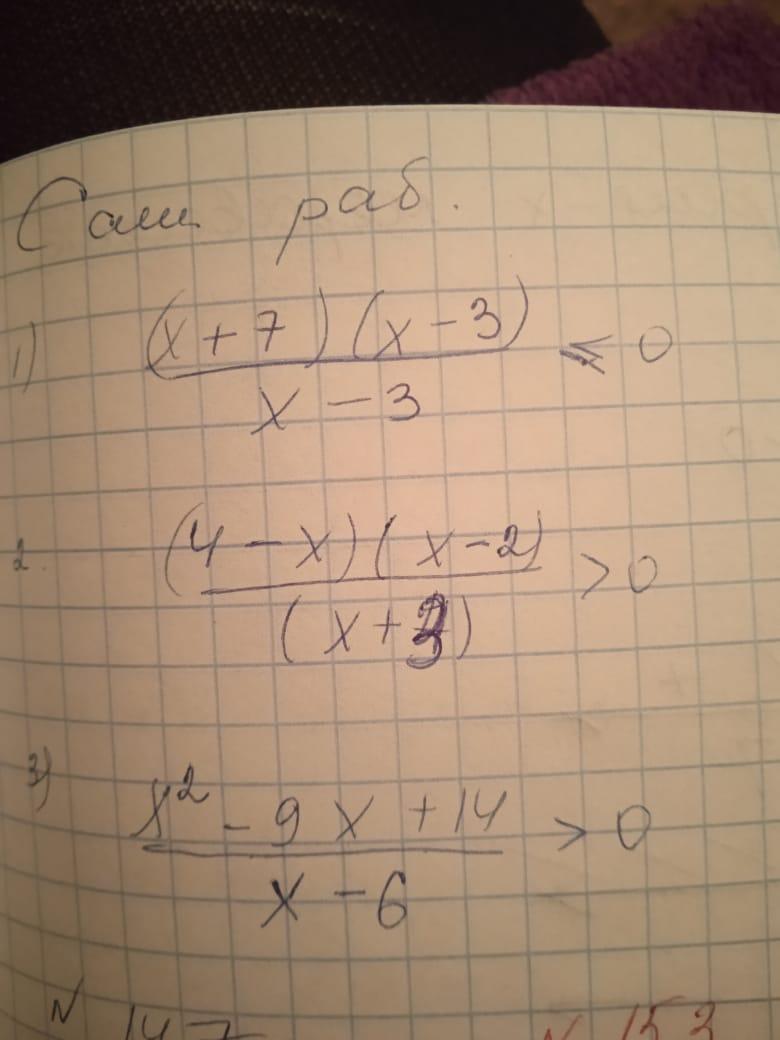 Сам раб.
1) (x+7)(x-3)
x-3 ≤ 0
2. (4-x)(x-2)
(x+3) > 0
3) x²-9x+14
x-6 > 0
N 147 N 153